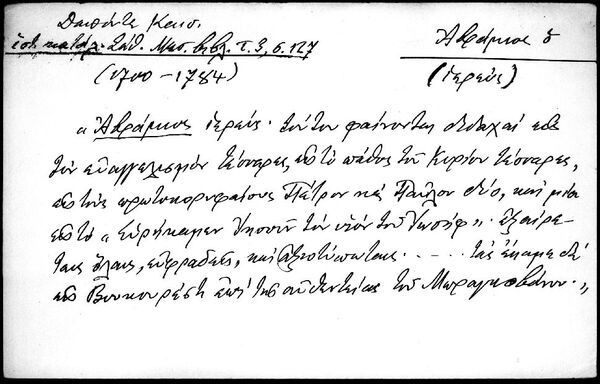 Δαπόντε Κωνσ.
ἱστ. κατάλ. Σάθ. Μεσ. βιβλ. τ. 3, σ. 127
(1700-1784)
Ἀβράμιος ὁ
(ἱερεύς)
"Ἀβράμιος ἱερεύς. τούτου φαίνονται διδαχαί εἰς
τὸν εὐαγγελισμόν τέσσαρες, εἰς τὸ πάθος τοῦ Κυρίου τέσσαρες,
εἰς τοὺς πρωτοκορυφαίους Πέτρον καὶ Παῦλον δύο, καὶ μία
εἰς τὸ "Εὑρήκαμεν Ἰησοῦν τὸν υἱὸν τοῦ Ἰωσήφ". ἐξαίρε-
ται ὅλαι, εὐφραδεῖς, καὶ ἀξιοτύπωται. ..... τὰς ἔκαμε δὲ
εἰς Βουκουρέστι ἐπὶ τῆς αὐθεντείας τοῦ Μπραγκοβάνου."